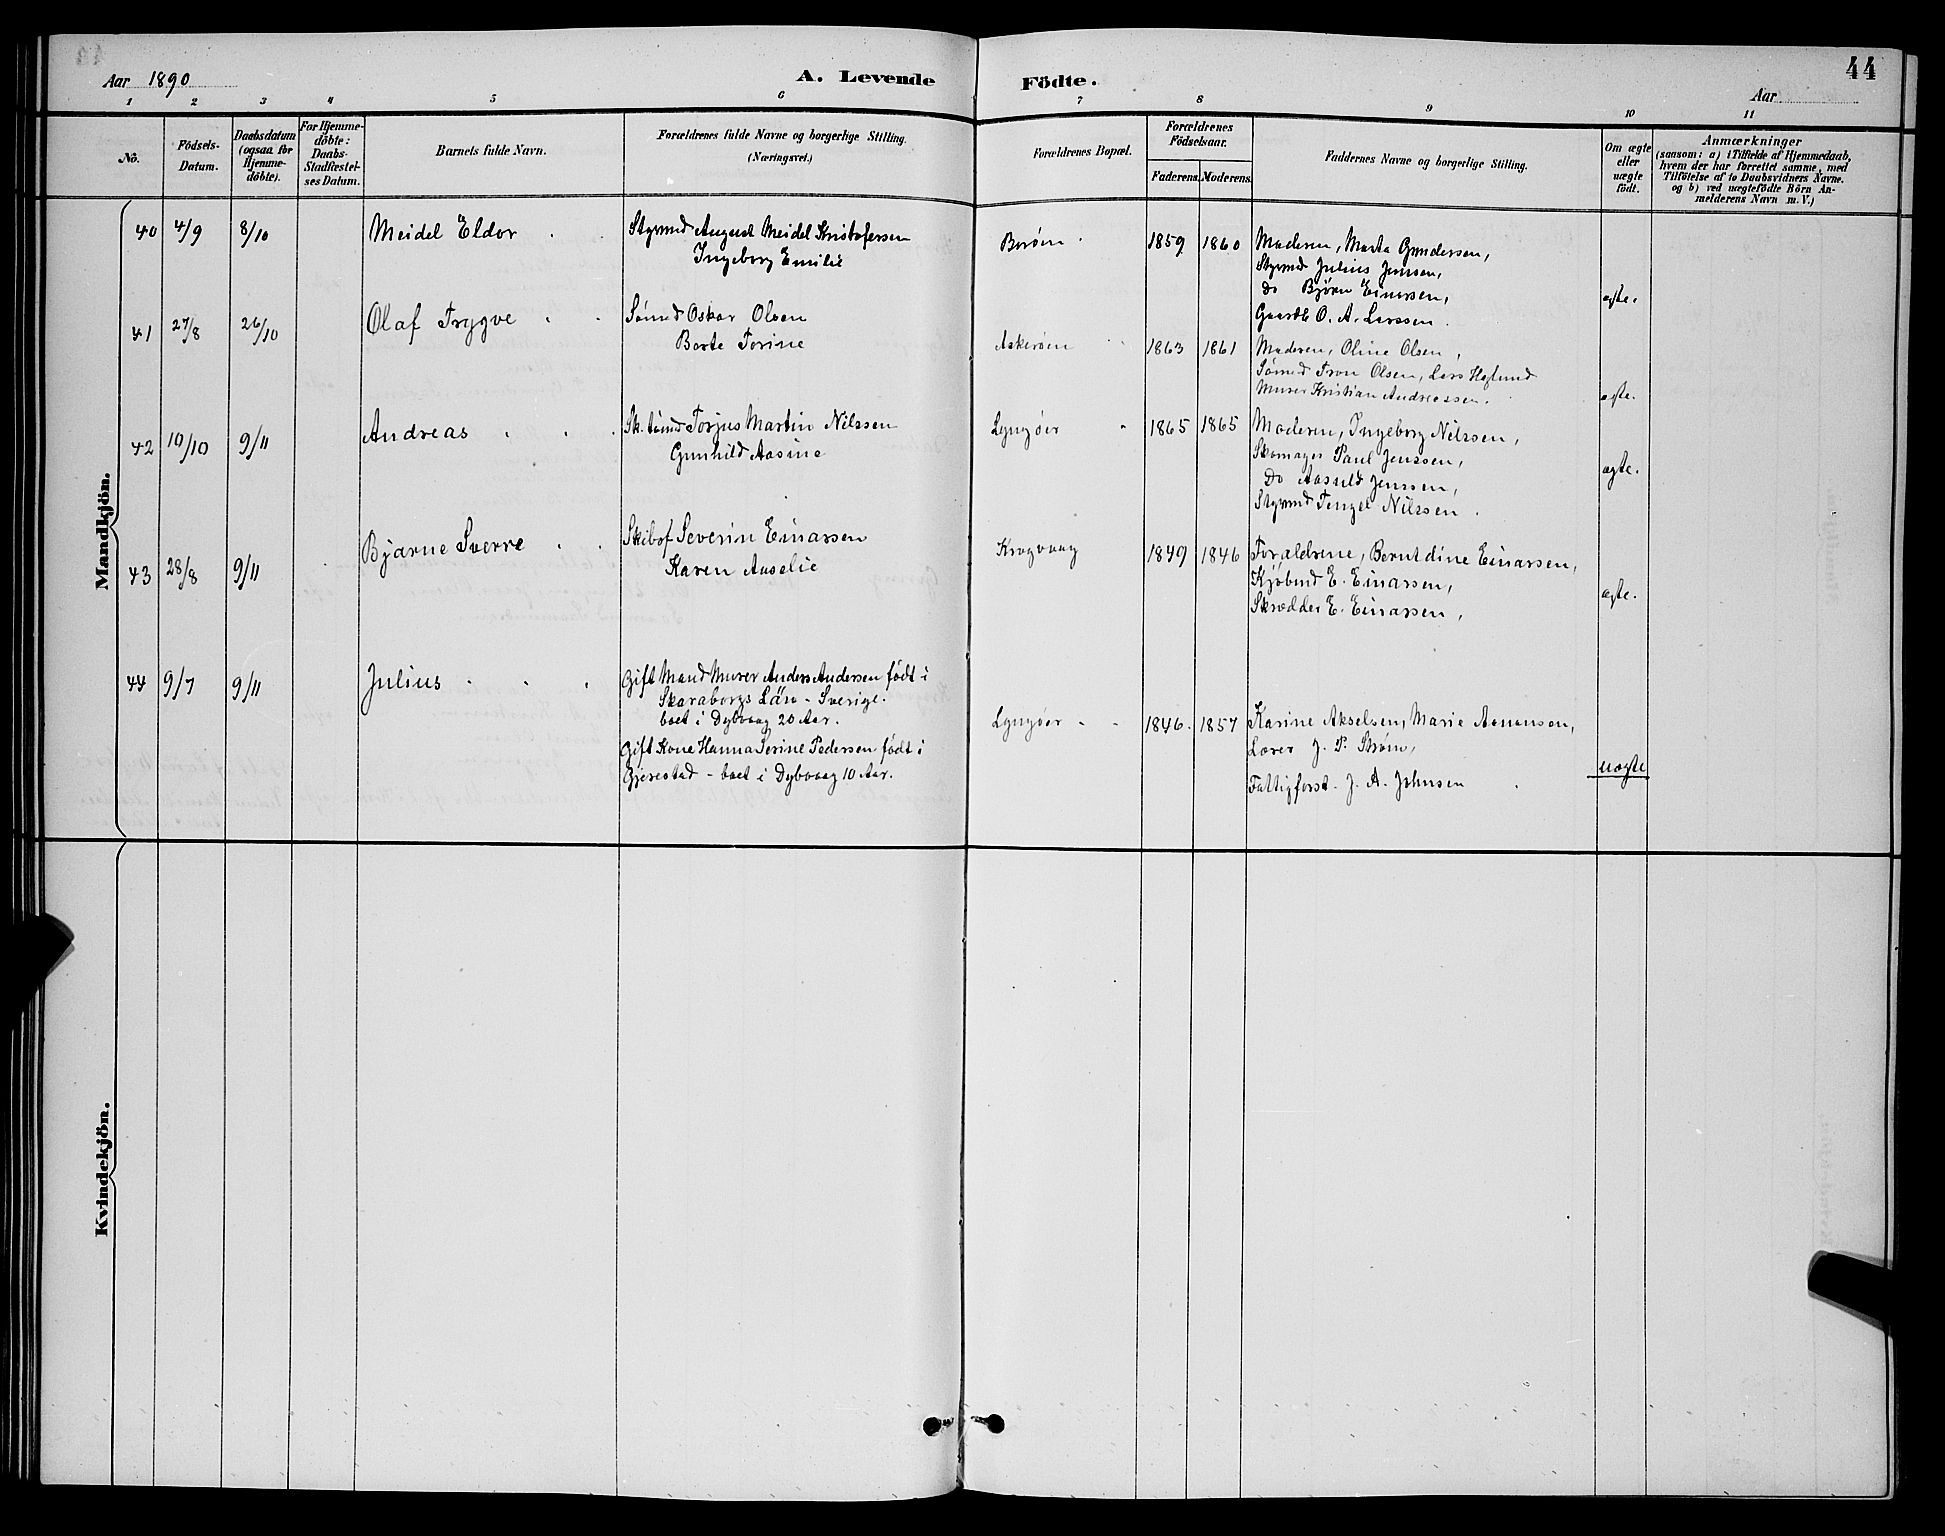 Aar 1890
A. Levende Födte.
44
Aar
1 2 3 4 5 6 7 8 9 10 11
No.
Födsels-Datum.
Daabsdatum (ogsaa for Hjemmedöbte).
For Hjemmedöbte: Daabs-Stadfæstelses Datum.
Barnets fulde Navn.
Forældrenes fulde Navne og borgerlige Stilling.
(Næringsvei.)
Forældrenes Bopæl.
Forældrenes Födselsaar.
Faderens. Moderens.
Faddernes Navne og borgerlige Stilling.
Om ægte eller uægte födt.
Anmærkninger
(saasom: a) i Tilfælde af Hjemmedaab,
hvem der har forrettet samme, med
Tilföielse af to Daabsvidners Navne.
og b) ved uægtefödte Börn An-
melderens Navn m. V.)
Mandkjön.
40 4/9 8/10 Meidel Eldor
Styrmd August Meidel Kristofersen
Ingeborg Emilie
Borøen 1859 1860
Moderen, Marta Gundersen,
Styrmd Julius Jensen,
Do Bjørn Einersen,
Gaardb O. A. Larssen.
ægte.
41 27/8 26/10 Olaf Trygve
Sømd Oskar Olsen
Berte Torine
Askerøen 1863 1861
Moderen, Oline Olsen,
Sømd Tron Olsen, Lars Høglund
Murer Kristian Andreassen.
ægte.
42 10/10 9/11 Andreas
Sk.tømd Torjus Martin Nilssen
Gunhild Aasine
Lyngøer 1865 1865
Moderen, Ingeborg Nilssen,
Skomager Paul Jenssen,
Do Aasuld Jenssen,
Styrmd Tengel Nilssen.
ægte.
43 28/8 9/11 Bjarne Sverre
Skibsf Severin Einarsen
Karen Amelie
Krogvaag 1849 1846
Forældrene, Berntdine Einarsen,
Kjøbmd E. Einarsen,
Skrædder E. Einarsen,
ægte.
44 9/7 9/11 Julius
Gift Mand Murer Anders Andersen født i
Skaraborgs Län - Sverige.
boet i Dybvaag 20 Aar.
Gift Kone Hanna Serine Pedersen født i
Gjerestad - boet i Dybvaag 10 Aar.
Lyngøer 1846. 1857
Karine Akselsen, Marie Aanonsen,
Lærer J. P. Strøm,
Fattigforst. J. A. Johnsen
uægte
Kvindekjön.